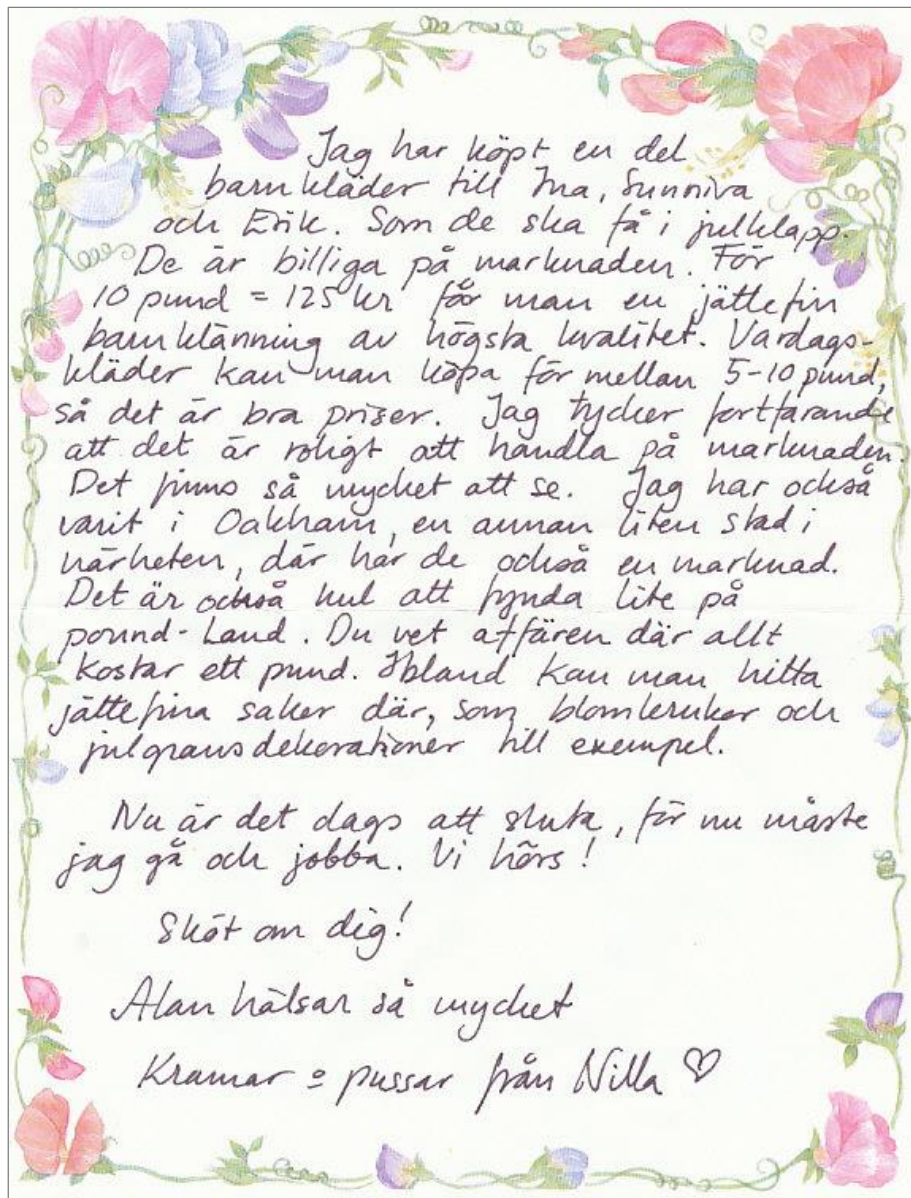 Jag har köpt en del
barnkläder till Ina, Sunniva
och Erik. Som de ska få i julklapp.
De är billiga på marknaden. För
10 pund = 125 kr får man en jättefin
barnklänning av högsta kvalitet. Vardags-
kläder kan man köpa för mellan 5-10 pund,
så det är bra priser. Jag tycker fortfarande
att det är roligt att handla på marknaden.
Det finns så mycket att se. Jag har också
varit i Oakham, en annan liten stad i
närheten, där har de också en marknad.
Det är också kul att fynda lite på
pound-Land. Du vet affären där allt
kostar ett pund. Ibland kan man hitta
jättefina saker där, som blomkrukor och
julgransdekorationer till exempel.
Nu är det dags att sluta, för nu måste
jag gå och jobba. Vi hörs!
Sköt om dig!
Alan hälsar så mycket
Kramar o pussar från Nilla ♡